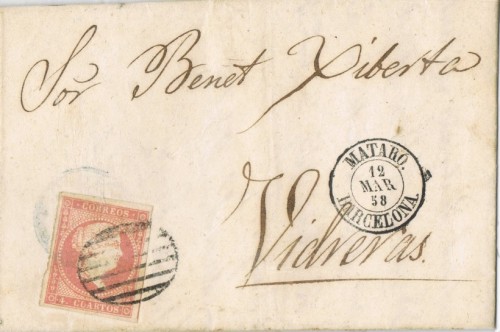 Sõr Benet Xiberta
MATARO.
12
MAR
58
BARCELONA.
Vidreras.
CORREOS
4 CUARTOS